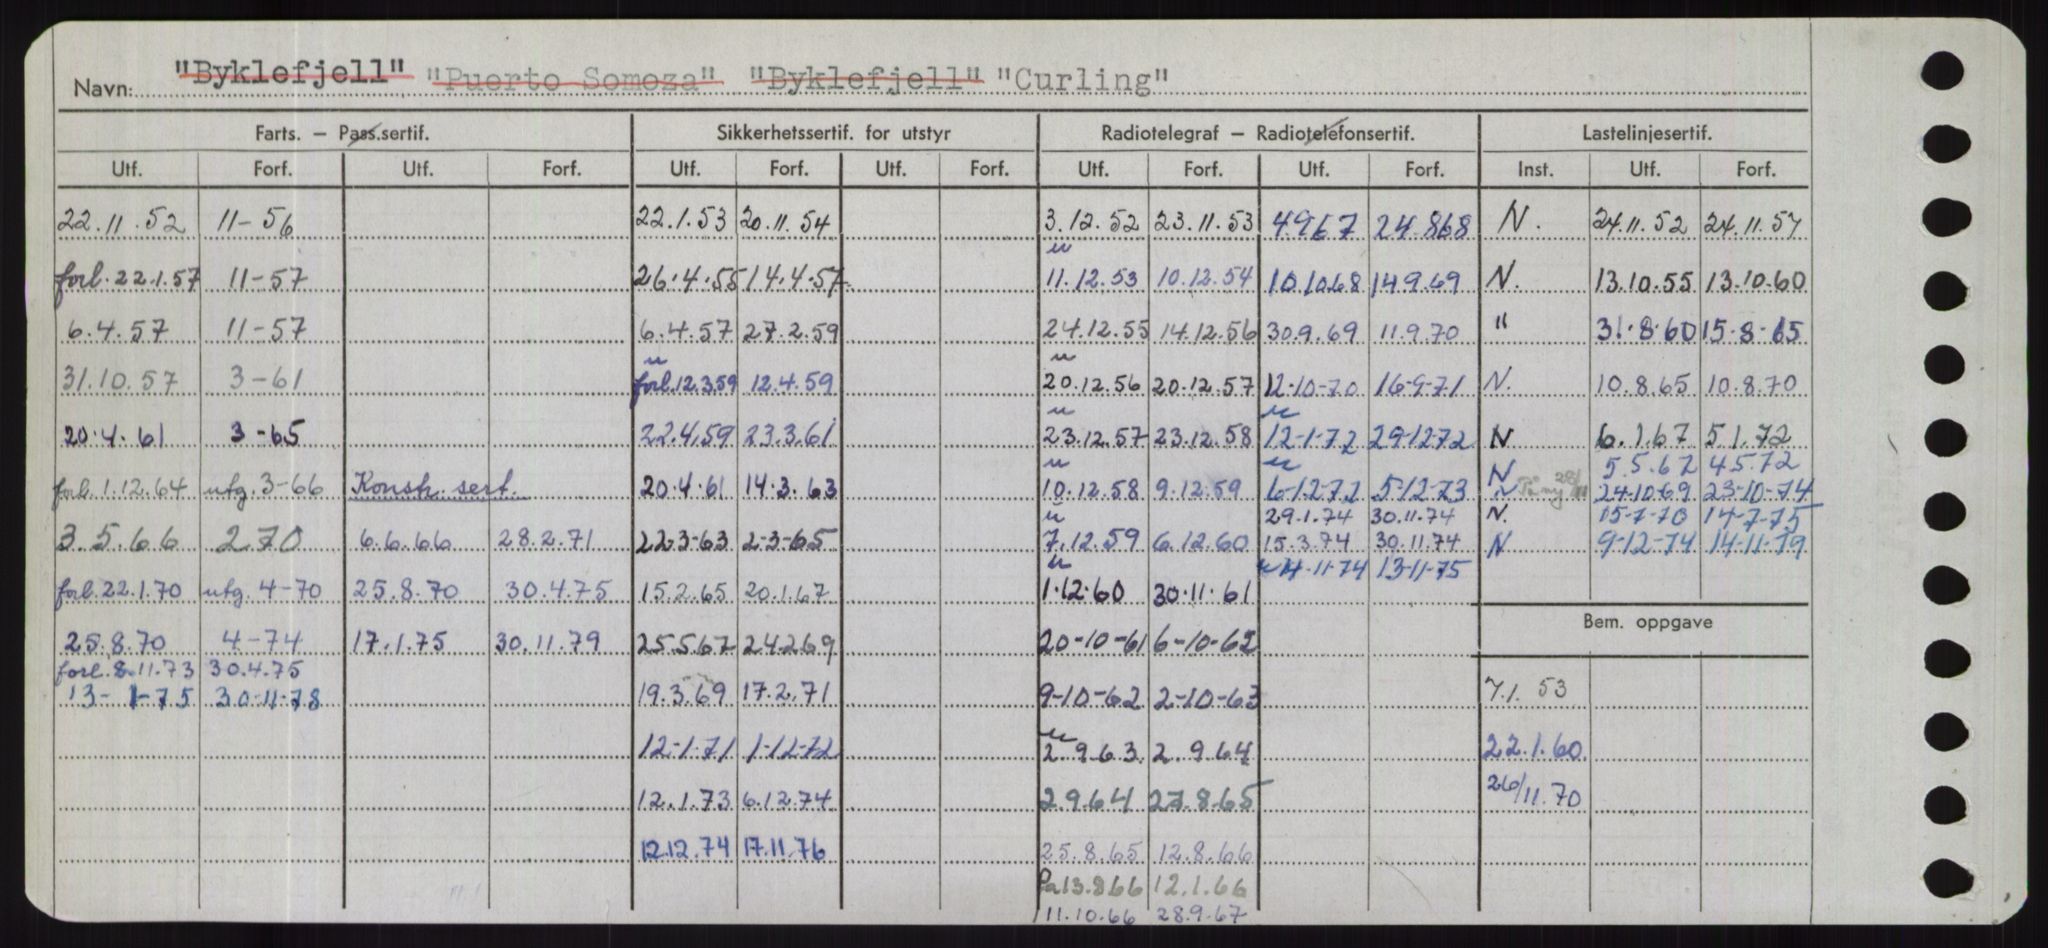 Navn: "Byklefjell" "Puerto Somoza" "Byklefjell" "Curling"
Farts. – Pass.sertif. Sikkerhetssertif. for utstyr Radiotelegraf – Radiotelefonsertif. Lastelinjesertif.
Utf. Forf. Utf. Forf. Utf. Forf. Utf. Forf. Utf. Forf. Utf. Forf. Inst. Utf. Forf.
22.11.52 11-56 22.1.53 20.11.54 3.12.52 23.11.53 4.9.67 24.8.68 N. 24.11.52 24.11.57
forl. 22.1.57 11-57 26.4.55 14.4.57 11.12.53 10.12.54 10.10.68 14.9.69 N. 13.10.55 13.10.60
6.4.57 11-57 6.4.57 27.2.59 24.12.55 14.12.56 30.9.69 11.9.70 " 31.8.60 15-8-65
31.10.57 3-61 forl. 12.3.59 12.4.59 20.12.56 20.12.57 12-10-70 16-9-71 N. 10.8.65 10.8.70
20.4.61 3-65 22.4.59 23.3.61 23.12.57 23.12.58 12-1-72 29-12-72 N 6.1.67 5.1.72
N 5.5.67 4.5.72
forl. 1.12.64 utg. 3-66 Konstr. sert. 20.4.61 14.3.63 10.12.58 9.12.59 6-12-72 5-12-73 24-10-69 23-10-74
29.1.74 30.11.74 N. 15-7-70 14-7-75
3.5.66 2 70 6.6.66 28.2.71 22-3-63 2-3-65 7.12.59 6.12.60 15.3.74 30.11.74 N 9-12-74 14-11-79
14-11-74 13-11-75
forl. 22.1.70 utg. 4-70 25.8.70 30.4.75 15.2.65 20.1.67 1.12.60 30.11.61
Bem. oppgave
25.8.70 4-74 17.1.75 30.11.79 25.5.67 24.2.69 20-10-61 6-10-62
forl. 8.11.73 30.4.75
13-1-75 30-11-78 19.3.69 17.2.71 9-10-62 2-10-63 7.1.53
12-1-71 1-12-72 2.9.63 2.9.64 22.1.60.
12.1.73 6.12.74 2.9.64 27.8.65 26/11.70
12.12.74 17.11.76 25.8.65 12.8.66
13.8.66 12.1.66
11.10.66 28.9.67